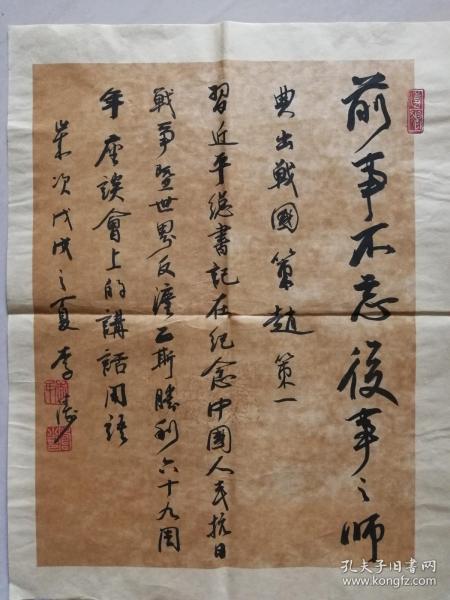 前事不忘後事之師
典出戰國策趙策一
習近平總書記在紀念中國人民抗日
戰爭暨世界反瀍乙斯勝利六十九周
年座談會上的講話用語
歲次戊戌之夏李
孔夫子旧书网
www.kongfz.com